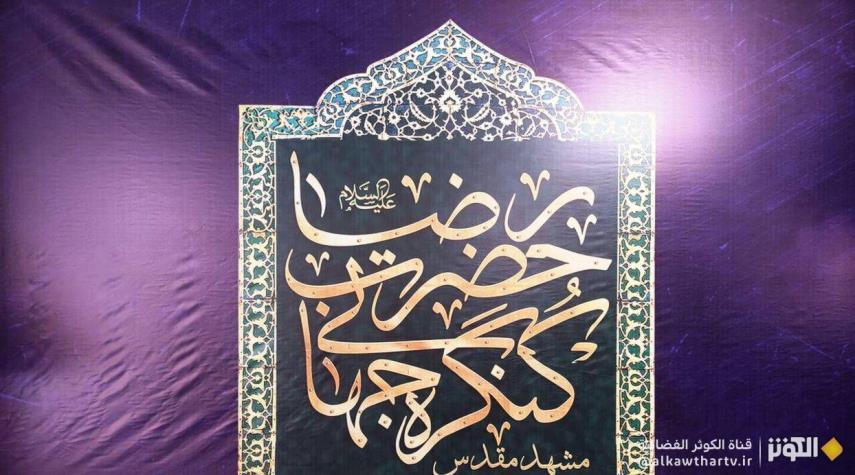 کنگره جهانی
حضرت
رضا
علیه السلام
مشهد مقدس
الكوثر
قناة الكوثر الفضائية
@alkawthartv.ir